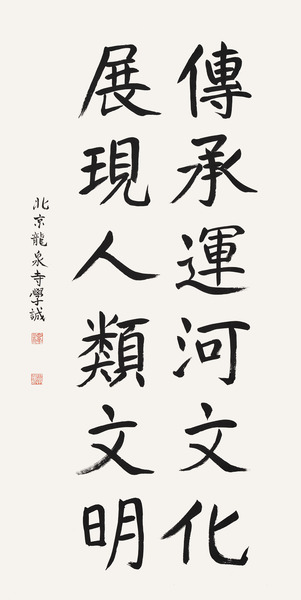 傳承運河文化
展現人類文明
北京龍泉寺學誠